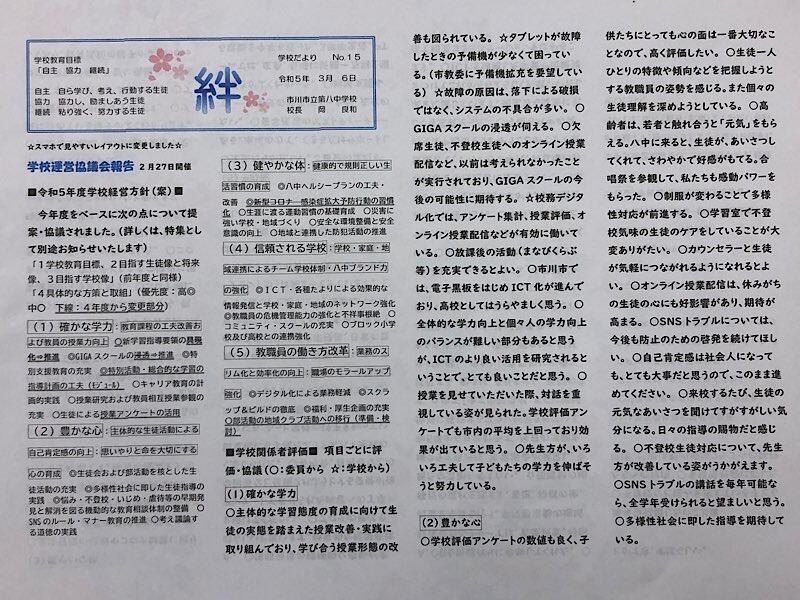 学校教育目標
「自主 協力 継続」
自主 自ら学び、考え、行動する生徒
協力 協力し、励ましあう生徒
継続 粘り強く、努力する生徒
絆
学校だより No.15
令和5年 3月 6日
市川市立第八中学校
校長 岡 良和
☆スマホで見やすいレイアウトに変更しました☆
学校運営協議会報告 2月27日開催
■令和5年度学校経営方針（案）■
今年度をベースに次の点について提
案・協議されました。（詳しくは、特集とし
て別途お知らせいたします）
「1学校教育目標、2目指す生徒像と将来
像、3目指す学校像」（前年度と同様）
「4具体的な方策と取組」（優先度：高◎
中○ 下線：4年度から変更部分）
（1）確かな学力：教育課程の工夫改善お
よび教員の授業力向上 ○新学習指導要領の具現
化⇒推進 ◎GIGAスクールの浸透⇒推進 ◎特
別支援教育の充実 ◎特別活動・総合的な学習の
指導計画の工夫（ﾓｼﾞｭｰﾙ） ○キャリア教育の計
画的実践 ○授業研究および教員相互授業参観の
充実 ○生徒による授業アンケートの活用
（2）豊かな心：主体的な生徒活動による
自己肯定感の向上：思いやりと命を大切にする
心の育成 ◎生徒会および部活動を核とした生
徒活動の充実 ◎多様性社会に即した生徒指導の
実践 ◎悩み・不登校・いじめ・虐待等の早期発
見と解消を図る機動的な教育相談体制の整備 ○
SNSのルール・マナー教育の推進 ○考え議論す
る道徳の実践
（3）健やかな体：健康的で規則正しい生
活習慣の育成 ◎八中ヘルシープランの工夫・
改善 ◎新型コロナ…感染症拡大予防行動の習慣
化 ○生涯に渡る運動習慣の基礎育成 ○災害に
強い学校・地域づくり ○安全な環境整備と安全
意識の向上 ○地域と連携した防犯活動の推進
（4）信頼される学校：学校・家庭・地
域連携によるチーム学校体制・八中ブランド力
の強化 ◎ＩＣＴ・各種たよりによる効果的な
情報発信と学校・家庭・地域のネットワーク強化
◎教職員の危機管理能力の強化と不祥事根絶 ○
コミュニティ・スクールの充実 ○ブロック小学
校及び高校との連携強化
（5）教職員の働き方改革：業務のス
リム化と効率化の向上：職場のモラールアップ
強化 ◎デジタル化による業務軽減 ◎スクラ
ップ＆ビルドの徹底 ◎福利・厚生企画の充実
○部活動の地域クラブ活動への移行（準備・検
討）
■学校関係者評価■ 項目ごとに評
価・協議（○：委員から ☆：学校から）
（1）確かな学力
○主体的な学習態度の育成に向けて生
徒の実態を踏まえた授業改善・実践に
取り組んでおり、学び合う授業形態の改
善も図られている。 ☆タブレットが故障
したときの予備機が少なくて困ってい
る。（市教委に予備機拡充を要望してい
る） ☆故障の原因は、落下による破損
ではなく、システムの不具合が多い。 ○
GIGAスクールの浸透が伺える。 ○欠
席生徒、不登校生徒へのオンライン授業
配信など、以前は考えられなかったこと
が実行されており、GIGAスクールの今
後の可能性に期待する。 ☆校務デジタ
ル化では、アンケート集計、授業評価、オ
ンライン授業配信などが有効に働いて
いる。 ○放課後の活動（まなびくらぶ
等）を充実できるとよい。 ○市川市で
は、電子黒板をはじめICT化が進んで
おり、高校としてはうらやましく思う。 ○
全体的な学力向上と個々人の学力向上
のバランスが難しい部分もあると思う
が、ICTのより良い活用を研究されると
いうことで、とても良いことだと思う。 ○
授業を見せていただいた際、対話を重
視している姿が見られた。学校評価アン
ケートでも市内の平均を上回っており効
果が出ていると思う。 ○先生方が、いろ
いろ工夫して子どもたちの学力を伸ばそ
うと努力している。
（2）豊かな心
○学校評価アンケートの数値も良く、子
供たちにとっても心の面は一番大切なこ
となので、高く評価したい。 ○生徒一人
ひとりの特徴や傾向などを把握しようと
する教職員の姿勢を感じる。また個々の
生徒理解を深めようとしている。 ○高
齢者は、若者と触れ合うと「元気」をもら
える。八中に来ると、生徒が、あいさつし
てくれて、さわやかで好感がもてる。合
唱祭を参観して、私たちも感動パワーを
もらった。 ○制服が変わることで多様
性対応が前進する。 ○学習室で不登
校気味の生徒のケアをしていることが大
変ありがたい。 ○カウンセラーと生徒
が気軽につながれるようになれるとよ
い。 ○オンライン授業配信は、休みがち
の生徒の心にも好影響があり、期待が
高まる。 ○SNSトラブルについては、
今後も防止のための啓発を続けてほし
い。 ○自己肯定感は社会人になって
も、とても大事だと思うので、このまま進
めてください。 ○来校するたび、生徒の
元気なあいさつを聞けてすがすがしい気
分になる。日々の指導の賜物だと感じ
る。 ○不登校生徒対応について、先生
方が改善している姿がうかがえます。
○SNSトラブルの講話を毎年可能な
ら、全学年受けられると望ましいと思う。
○多様性社会に即した指導を期待して
いる。